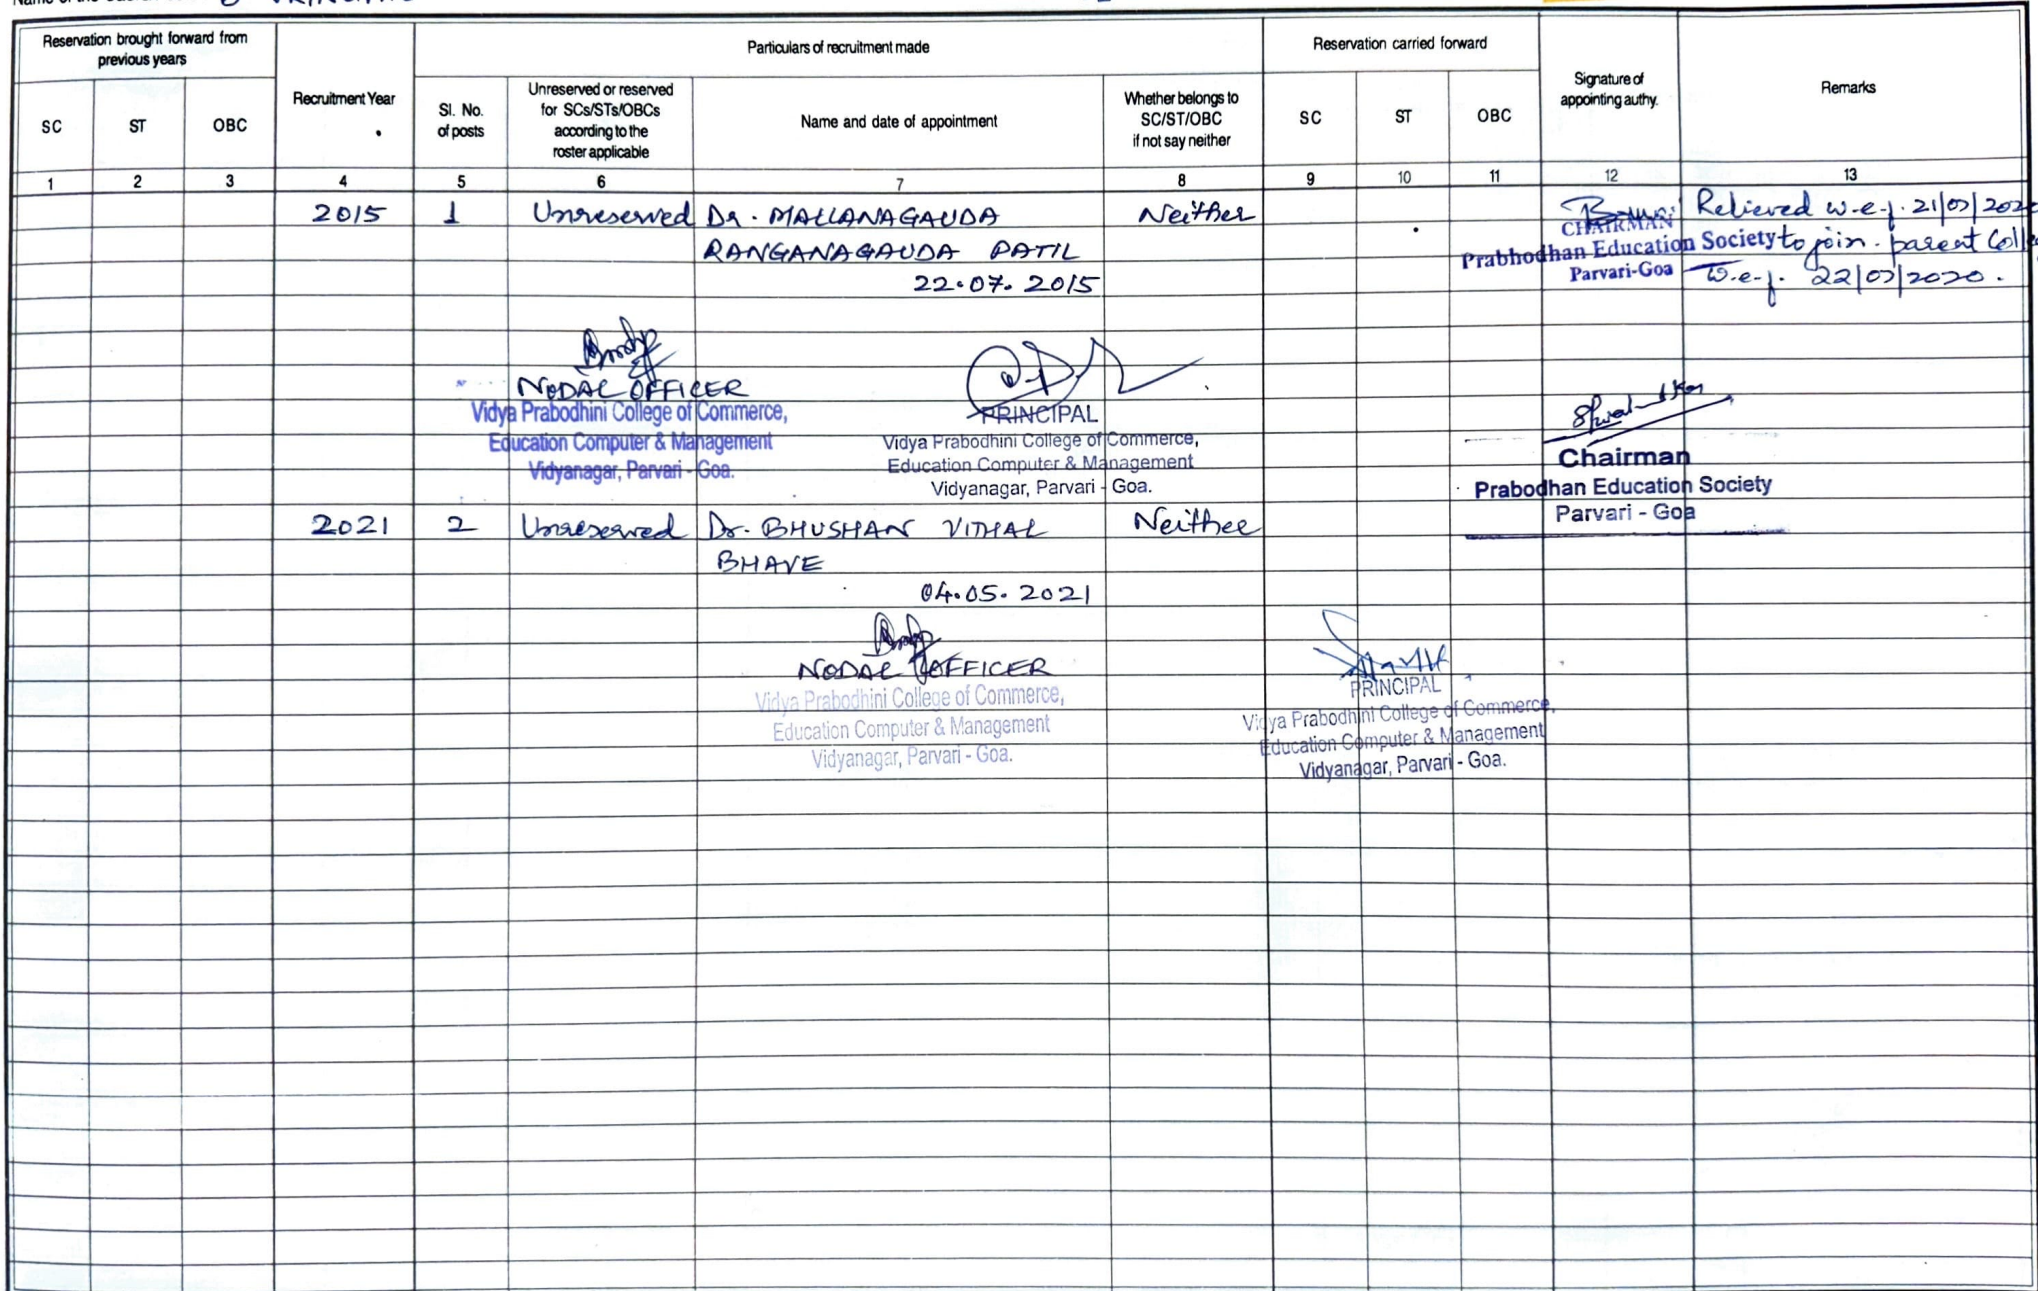 PRINCIPAL
Reservation brought forward from
previous years
Recruitment Year
Particulars of recruitment made
Reservation carried forward
Signature of
appointing authy.
Remarks
SC
ST
OBC
Sl. No.
of posts
Unreserved or reserved
for SCs/STs/OBCs
according to the
roster applicable
Name and date of appointment
Whether belongs to
SC/ST/OBC
if not say neither
SC
ST
OBC
1 2 3 4 5 6 7 8 9 10 11 12 13
2015 1 Unreserved Dr. MALLANAGAUDA Neither
RANGANAGAUDA PATIL
22.07.2015
CHAIRMAN
Prabhodhan Education Society
Parvari-Goa
Relieved w.e.f. 21/07/2020
to join parent Colle
w.e.f. 22/07/2020.
NODAL OFFICER
Vidya Prabodhini College of Commerce,
Education Computer & Management
Vidyanagar, Parvari - Goa.
PRINCIPAL
Vidya Prabodhini College of Commerce,
Education Computer & Management
Vidyanagar, Parvari - Goa.
Chairman
Prabodhan Education Society
Parvari - Goa
2021 2 Unreserved Dr. BHUSHAN VITHAL Neither
BHAVE
04.05.2021
NODAL OFFICER
Vidya Prabodhini College of Commerce,
Education Computer & Management
Vidyanagar, Parvari - Goa.
PRINCIPAL
Vidya Prabodhini College of Commerce,
Education Computer & Management
Vidyanagar, Parvari - Goa.